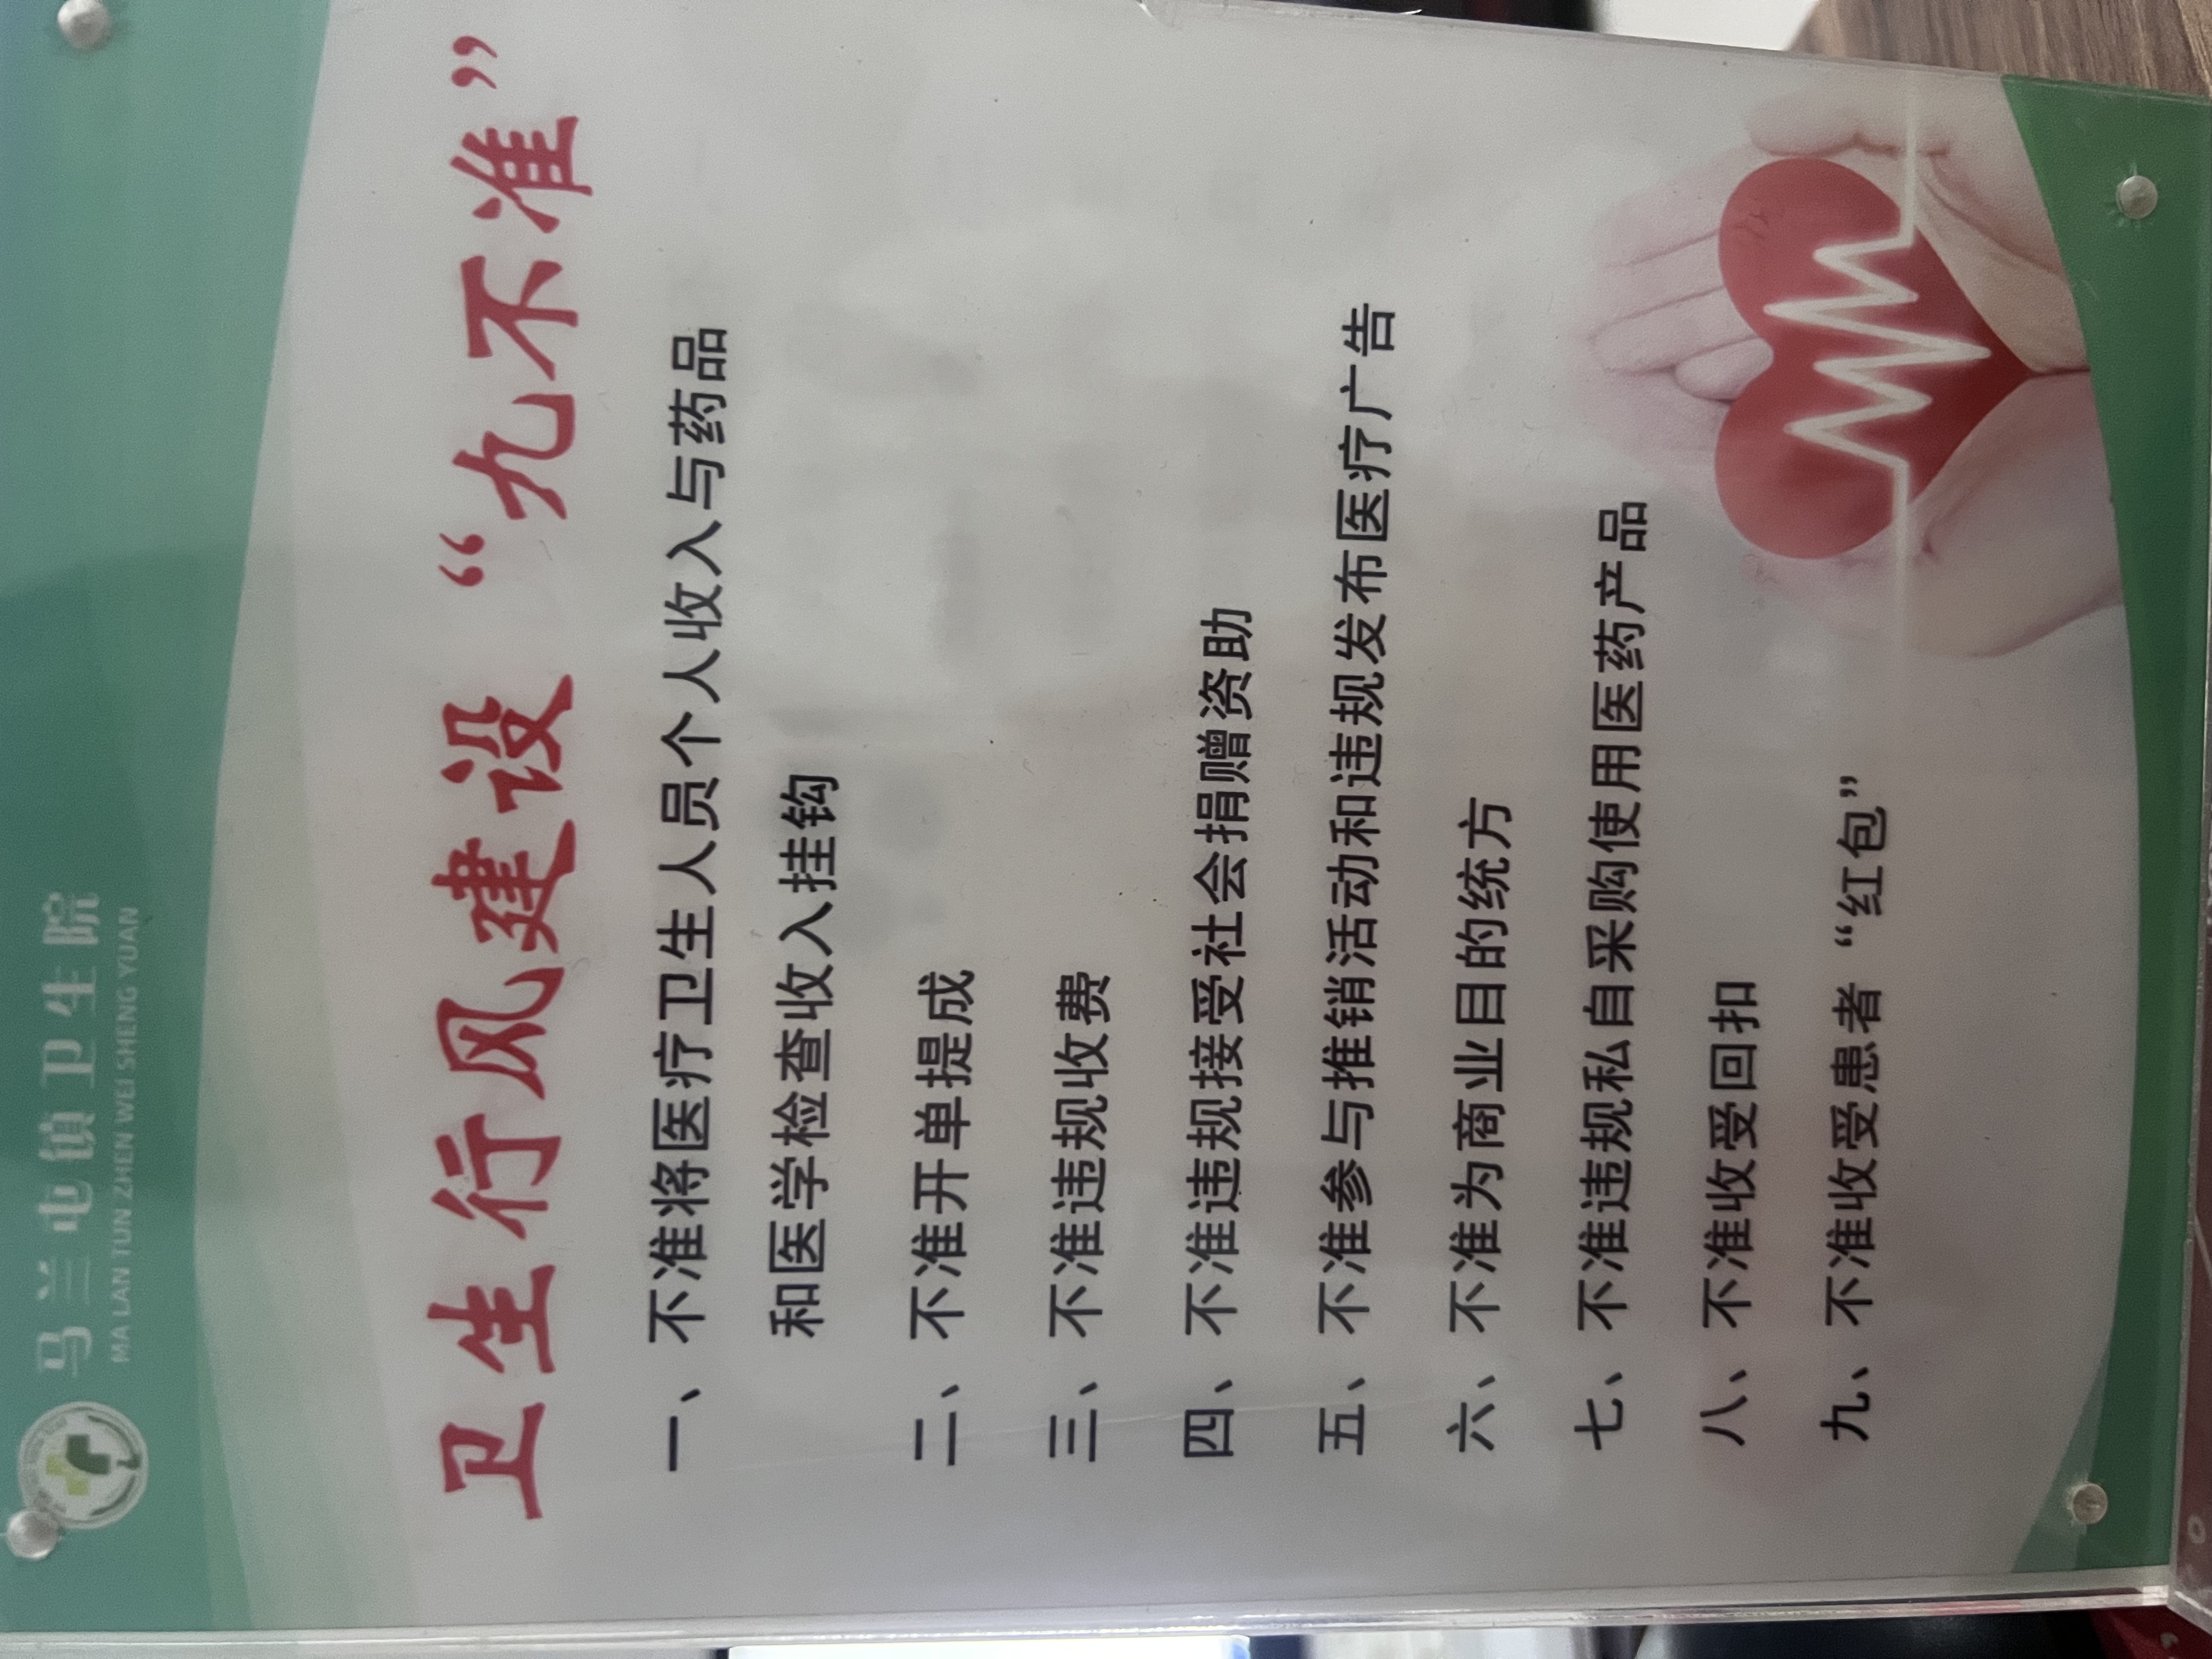 马兰屯镇卫生院
MA LAN TUN ZHEN WEI SHENG YUAN
卫生行风建设“九不准”
一、不准将医疗卫生人员个人收入与药品
和医学检查收入挂钩
二、不准开单提成
三、不准违规收费
四、不准违规接受社会捐赠资助
五、不准参与推销活动和违规发布医疗广告
六、不准为商业目的统方
七、不准违规私自采购使用医药产品
八、不准收受回扣
九、不准收受患者“红包”